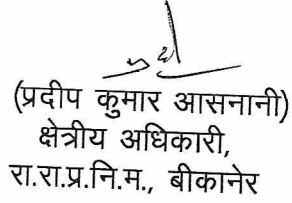 (प्रदीप कुमार आसनानी)
क्षेत्रीय अधिकारी,
रा.रा.प्र.नि.म., बीकानेर